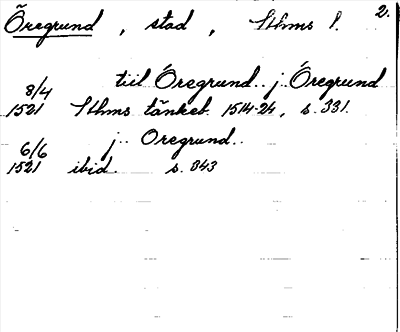 Öregrund, stad, Sthms l. 2.
8/4 tiil Öregrund.. j Öregrund
1521 Sthms tänkeb. 1514-24, s. 331.
6/6 j.. Oregrund..
1521 ibid. s. 343